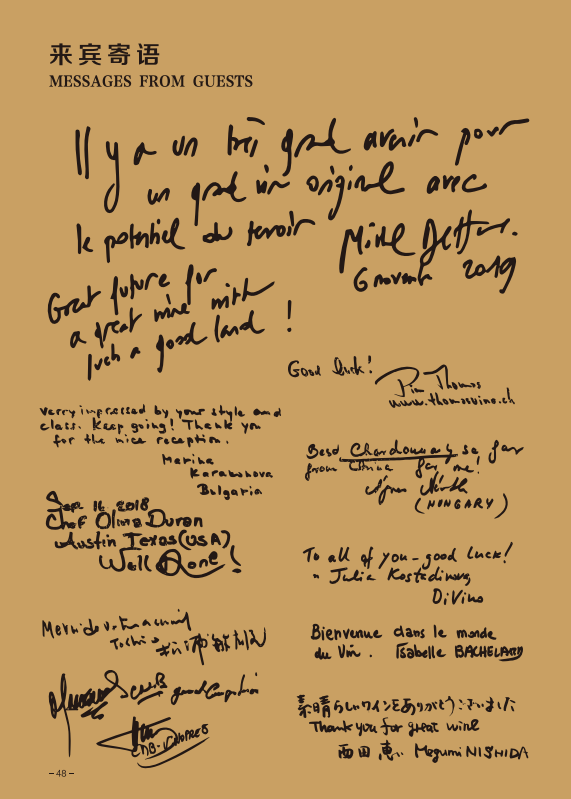 来宾寄语
MESSAGES FROM GUESTS
Il y a un très grand avenir pour
un grand vin original avec
le potentiel du terroir
6 novembre 2019
Great future for
a great wine with
such a good land !
Good luck!
Thomas
www.thomasvino.ch
Verry impressed by your style and
class. Keep going! Thank you
for the nice reception.
Marina
Bulgaria
Sep. 16 2018
Chef Duran
Austin Texas (USA)
Well Done!
Best Chardonnay so far
from China for me!
(HUNGARY)
To all of you - good luck!
Julia
DiVino
Merci de votre accueil
good
Bienvenue dans le monde
du Vin. Isabelle BACHELARD
素晴らしいワインをありがとうございました
Thank you for great wine
西田 恵 Megumi NISHIDA
– 48 –